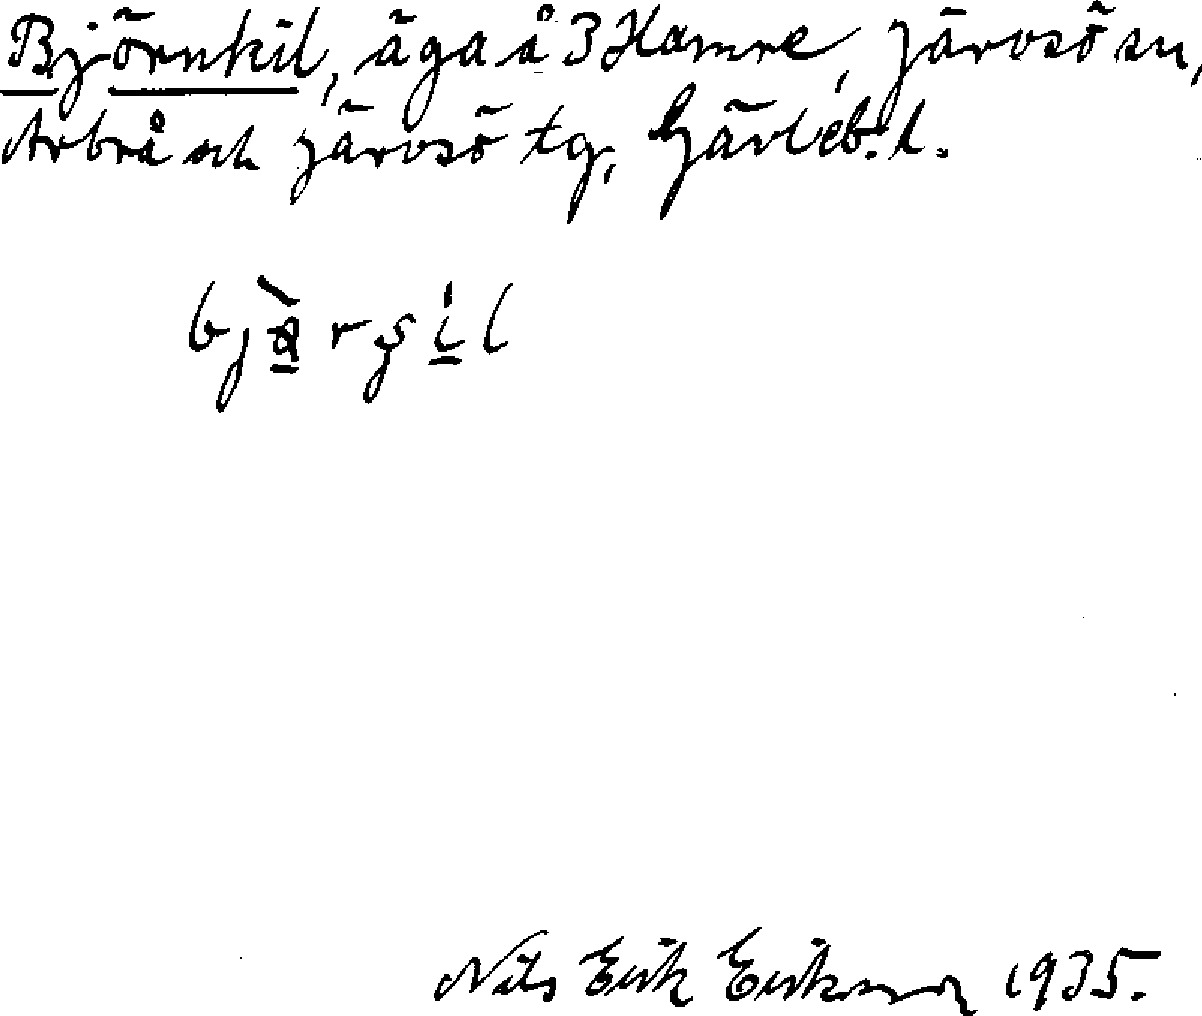 Björnkil, äga å 3 Hamre, Järvsö sn,
Arbrå och Järvsö tg, Gävleb. l.
Nils Erik Eriksson 1935.